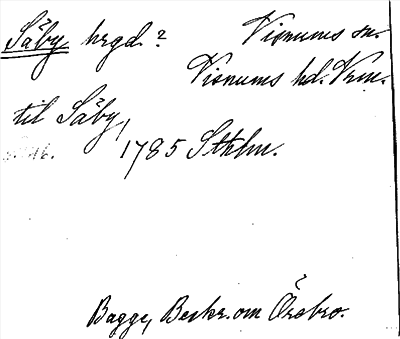 Säby hrgd? Visnums sn.
Visnums hd. Vrm.
til Säby,
1785 Sthlm.
Bagge, Beskr. om Örebro.